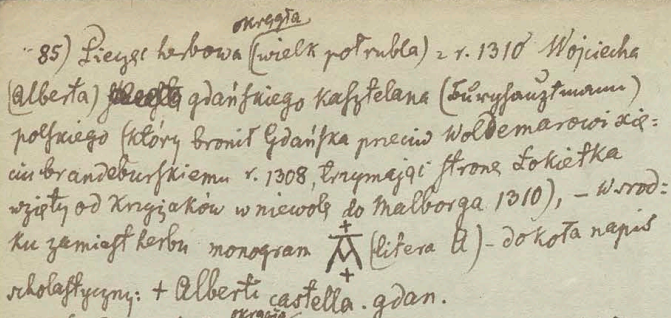 okrągła
85) Pieczęć herbowa (wielk pół rubla) z r. 1310 Wojciecha
(Alberta) gdańskiego kasztelana (Burghauptmann)
polskiego (który bronił Gdańska przeciw Woldemarowi xię=
ciu brandeburskiemu r. 1308, trzymając stronę Łokietka
wzięty od Krzyżaków w niewolę do Malborga 1310), – w środ=
ku zamiast herbu monogram (litera A) – dokoła napis
scholastyczny: + Alberti castella. gdan.
okrągła